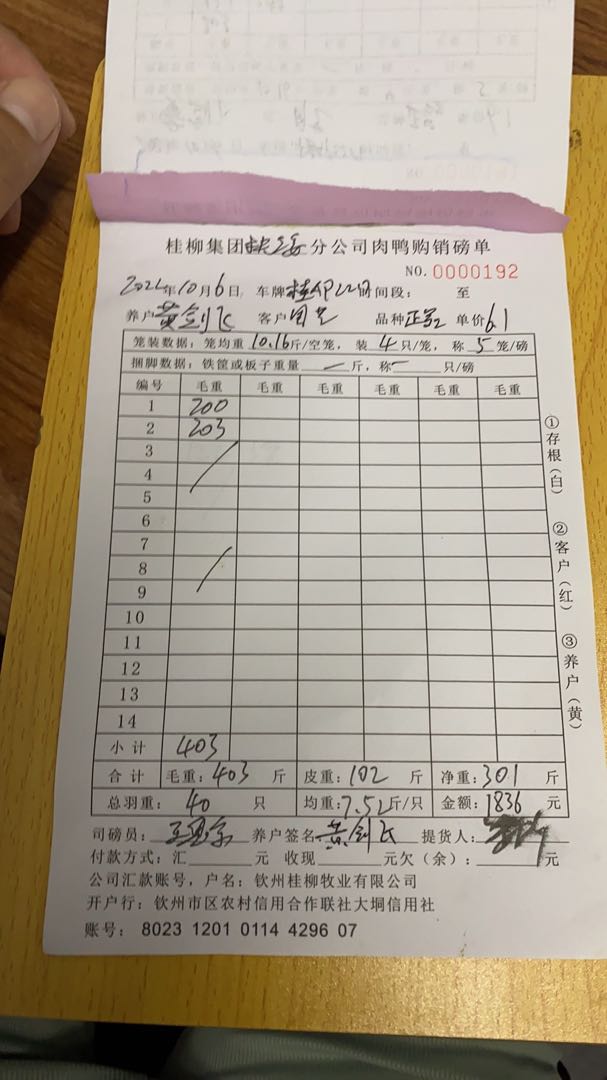 桂柳集团扶绥分公司肉鸭购销磅单
NO. 0000192
2022年10月6日 车牌 时间段: 至
养户 黄剑飞 客户 品种 单价 6.1
笼装数据: 笼均重 10.16 斤/空笼, 装 4 只/笼, 称 5 笼/磅
捆脚数据: 铁筐或板子重量 — 斤, 称 — 只/磅
编号 毛重 毛重 毛重 毛重 毛重 毛重
1 200
2 203
3
4
5
6
7
8
9
10
11
12
13
14
小计 403
合计 毛重: 403 斤 皮重: 102 斤 净重: 301 斤
总羽重: 40 只 均重: 7.52 斤/只 金额: 1836 元
司磅员: 养户签名 黄剑飞 提货人:
付款方式: 汇 元 收现 元欠(余): 元
公司汇款账号, 户名: 钦州桂柳牧业有限公司
开户行: 钦州市区农村信用合作联社大垌信用社
账号: 8023 1201 0114 4296 07
①存根(白)
②客户(红)
③养户(黄)